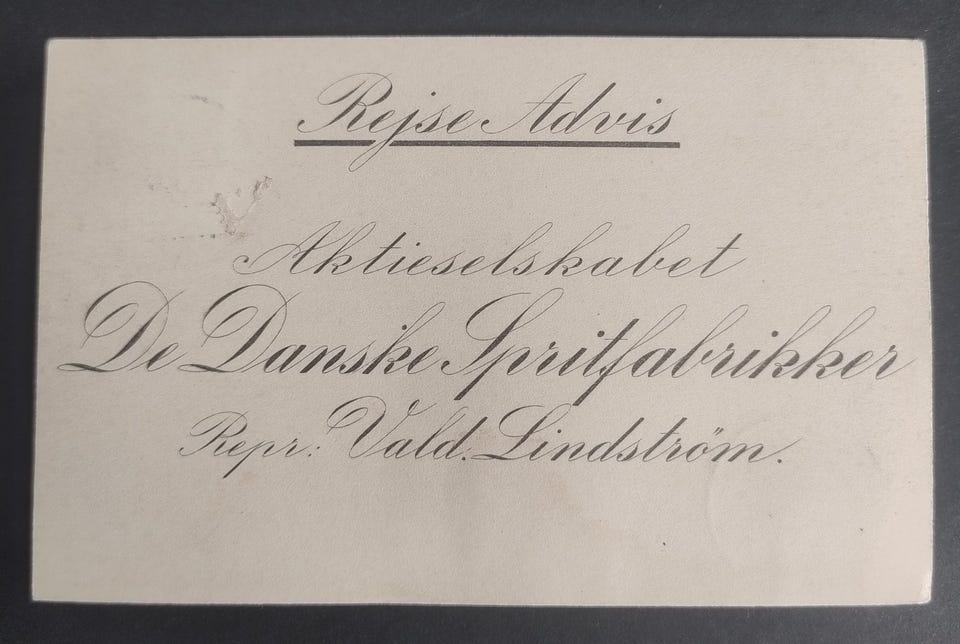 Rejse Advis
Aktieselskabet
De Danske Spritfabrikker
Repr: Vald. Lindström.